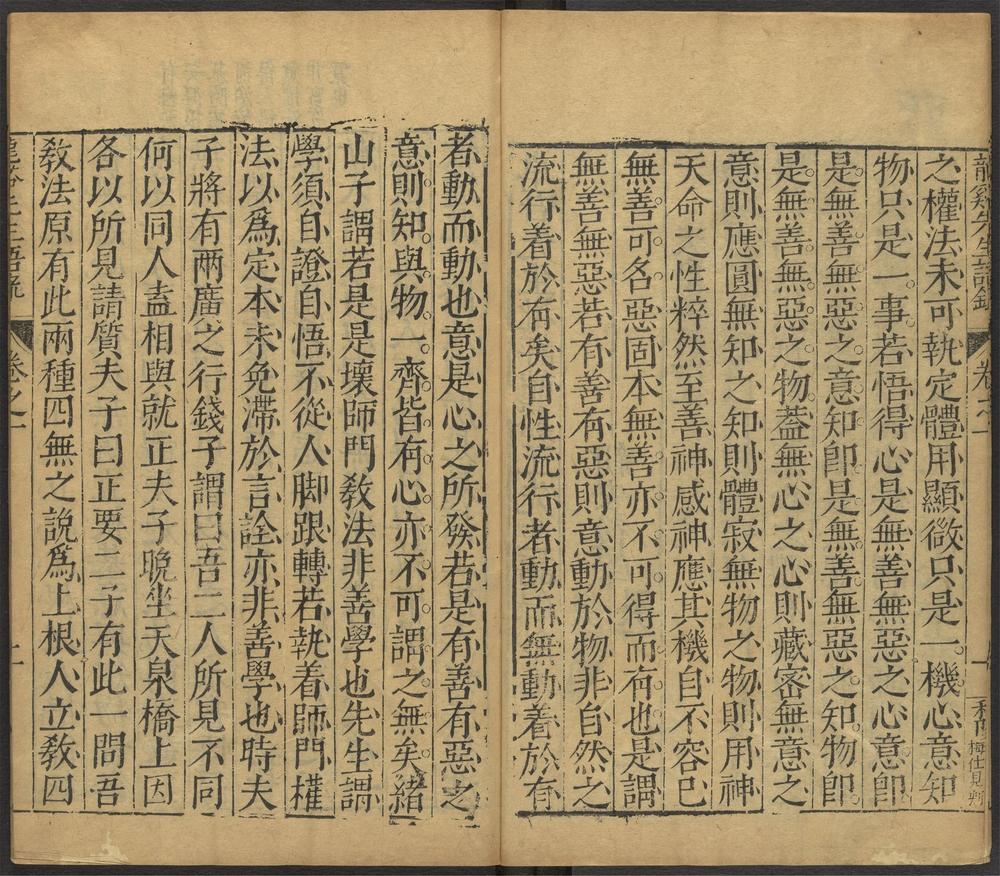 龍谿先生語錄 卷之一 一
之權法未可執定體用顯微只是一機心意知
物只是一事若悟得心是無善無惡之心意即
是無善無惡之意知即是無善無惡之知物即
是無善無惡之物蓋無心之心則藏密無意之
意則應圓無知之知則體寂無物之物則用神
天命之性粹然至善神感神應其機自不容已
無善可名惡固本無善亦不可得而有也是謂
無善無惡若有善有惡則意動於物非自然之
流行着於有矣自性流行者動而無動着於有
者動而動也意是心之所發若是有善有惡之
意則知與物一齊皆有心亦不可謂之無矣緒
山子謂若是是壞師門教法非善學也先生謂
學須自證自悟不從人脚跟轉若執着師門權
法以爲定本未免滯於言詮亦非善學也時夫
子將有兩廣之行錢子謂曰吾二人所見不同
何以同人盍相與就正夫子晚坐天泉橋上因
各以所見請質夫子曰正要二子有此一問吾
教法原有此兩種四無之說爲上根人立教四
卷之一